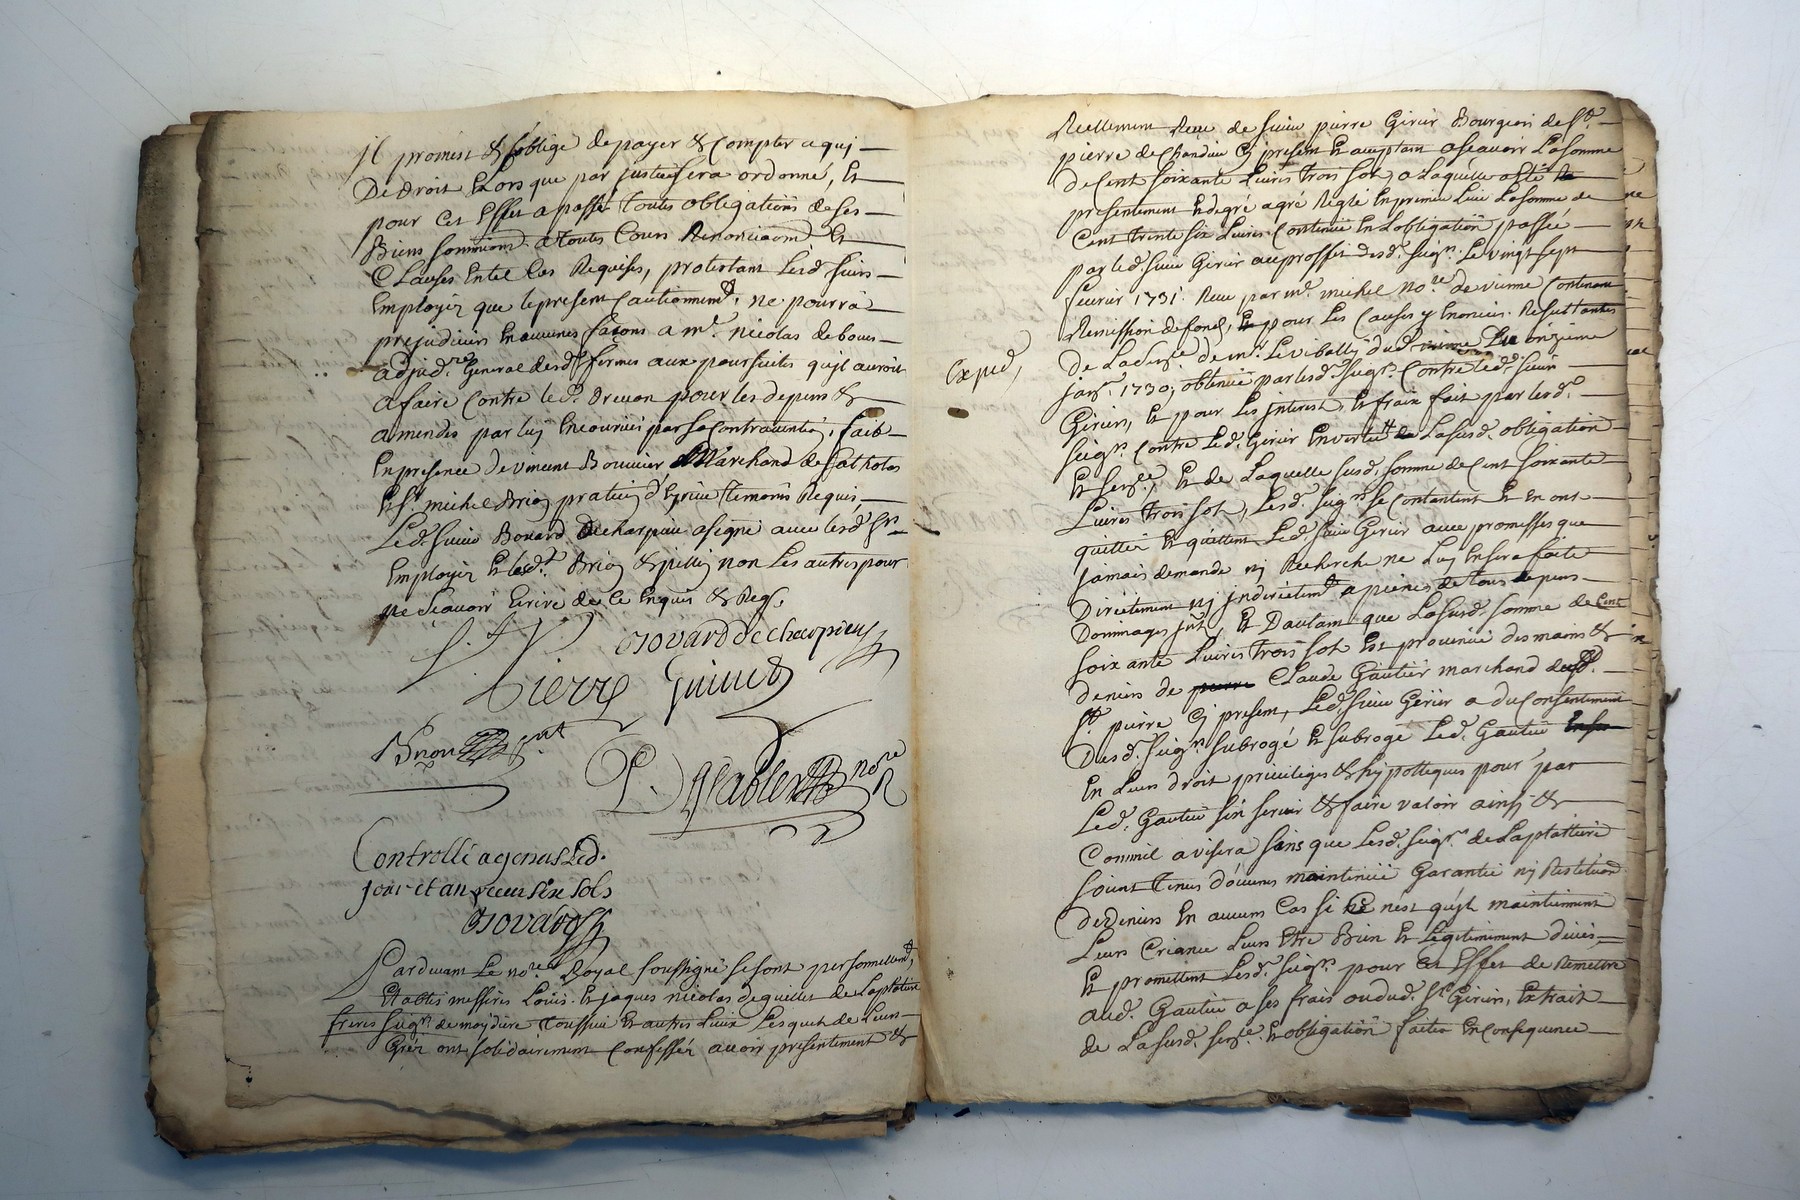 Il promest & s'oblige de payer & Compter a qui
De droit Et Lors que par justice sera ordonné, Et
pour Cet Effet a passé toutes obligations de ses
Biens soumissions a toutes Cours Renonciaons Et
Clauses En tel Cas Requises, protestant Lesd. sieurs
Employez que le present Cautionnemt. ne pourra
prejudicier En aucunes façons a mr. nicolas de
adjud.re General desd. fermes aux poursuites qu'jl auroit
a faire Contre led. Drevon pour les depens &
amendes par luy Encourües par sa Contravention, fait
En presence de vincent Bouvier Marchand de
Et sr. michel Brion praticien d' temoins Requis,
Led. sieur Bovard De charpieu a signé avec lesd. srs
Employez Et lesd.t Brion & non Les autres pour
ne sçavoir Ecrire de Ce Enquis & Reqs.
Bovard De Charpieux
Pierre Guinet
Brion pnt
nore
Controllé a genas Led.
jour et an receu six sols
Bovard
Pardevant Le nore Royal soussigné se sont personnellemt.
Etablis messires Louis Et jaques nicolas de guillet de Laplatiere
freres seigrs. de moydiere toussieu Et autres Lieux Lesquels de Leurs
Grez ont solidairement Confessés avoir presentement &
Reellement Receu de sieur pierre Girier Bourgeois de st.
pierre de Chandieu Cy present Et acceptant asçavoir La somme
de Cent soixante Livres trois sols a Laquelle a été
presentement de gré a gré Reglé En premier Lieu La somme de
Cent trente six Livres Contenüe En Lobligation passée
par led. sieur Girier au proffit desd. seigrs. Le vingt sept
fevrier 1731. Receu par me. michel nore. de vienne Contenant
Remission de fond, Et pour Les Causes y Enoncées Resultantes
Exped,
De La senre. de mr. Levibally dud. vienne Du onzieme
janr. 1730, obtenüe par lesd. seigrs. Contre led. sieur
Girier, Et pour Les jnterest Et fraix fait par lesd.
seigrs. Contre Led. Girier En vertu de La susd. obligation
Et senre., Et de Laquelle susd. somme de Cent soixante
Livres trois sols, Lesd. seigrs. se Contentent Et En ont
quitté Et quittent Led. sieur Girier avec promesses que
jamais demande ny Recherche ne Luy En sera faite
Directement ny jndirectemt. a peines de tous depens
Dommages jnts, Et Dautant que La susd. somme de Cent
soixante Livres trois sols Est provenüe des mains &
deniers de pierre Claude Gautier marchand dud.
st. pierre Cy present, Led. sieur Girier a du Consentement
Desd. seigrs. subrogé Et subroge Led. Gautier
En Leurs droit privileges & hypotteques pour par
Led. Gautier s'en servir & faire valoir ainsy &
Comme jl avisera sans que Lesd. seigrs. de Laplattiere
soient tenus d'aucunes maintenüe Garantie ny Restitution
de deniers En aucuns Cas si Ce nest qu'jls maintiennent
Leurs Criance Leurs Etre Bien Et Legitimement deües,
Et promettent Lesd. seigrs. pour Cet Effet de Remettre
aud. Gautier a ses frais ou dud. sr. Girier, Extrait
de La susd. senre. Et obligation faites En Consequence